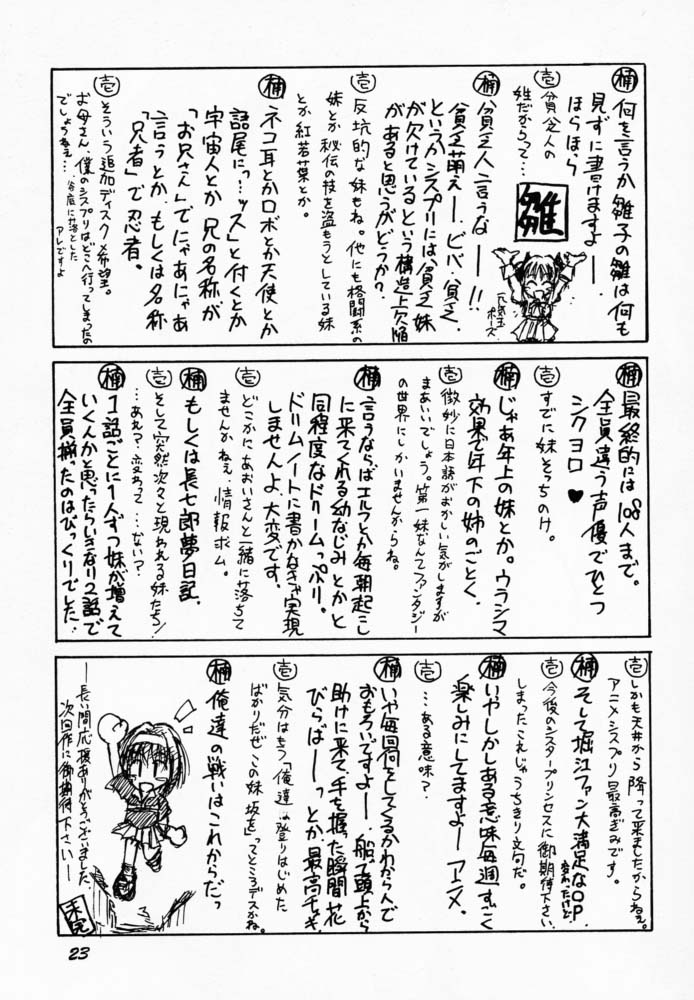 楠 何を言うか雛子の雛は何も
見ずに書けますよー。
ほらほら
壱 貧乏人の
姓だからって…
雛
元気玉
ポーズ
楠 貧乏人言うなーー!!
貧乏萌えー。ビバ、貧乏。
というかシスプリには、貧乏妹
が欠けているという構造上欠陥
があると思うがどうか?
壱 反抗的な妹もね。他にも格闘系の
妹とか秘伝の技を盗もうとしている妹
とか紅若葉とか。
楠 ネコ耳とかロボとか天使とか
語尾に「…ッス」と付くとか
宇宙人とか兄の名称が
「お兄さん」でにゃあにゃあ
言うとか、もしくは名称
「兄者」で忍者。
壱 そういう追加ディスク×希望。
お母さん、僕のシスプリはどこへ行ってしまったの
でしょうねぇ…谷底に落とした
アレですよ
楠 最終的には108人まで。
全員違う声優でひとつ
シクヨロ♥
壱 すでに妹そっちのけ。
楠 じゃあ年上の妹とか。ウラシマ
効果で年下の姉のごとく。
壱 微妙に日本語がおかしい気がしますが
まあいいでしょう。第一妹なんてファンタジー
の世界にしかいませんからね。
楠 言うならばエルフとか毎朝起こし
に来てくれる幼なじみとかと
同程度なドリームっぷり。
ドリームノートに書かなきゃ実現
しませんよ、大変です。
壱 どこかにあおいさんと一緒に落ちて
ませんかねぇ、情報求ム。
楠 もしくは長七郎夢日記。
壱 そして突然次々と現われる妹たち!
…あれ?変わって…ない?
楠 1話ごとに1人ずつ妹が増えて
いくんかと思ったらいきなり2話で
全員揃ったのはびっくりでした!
壱 しかも天井から降って来ましたからねぇ。
アニメシスプリ最高ぎみです。
楠 そして堀江ファン大満足なOP。
変わったけど
壱 今後のシスタープリンセスに御期待下さい。
しまったこれじゃうちきり文句だ。
楠 いやしかしある意味毎週すごく
楽しみにしてますよーアニメ。
壱 …ある意味?
楠 いや毎回何をしてくるかわからんで
おもろいですよー。船で頭上から
助けに来て、手を握った瞬間花
びらばーーっとか最高チャキ。
壱 気分はもう「俺達は登りはじめた
ばかりだぜこの妹坂を」ってところデスかね。
楠 俺達の戦いはこれからだっ
―長い間応援ありがとうございました。
次回作に御期待下さい―
未完
23